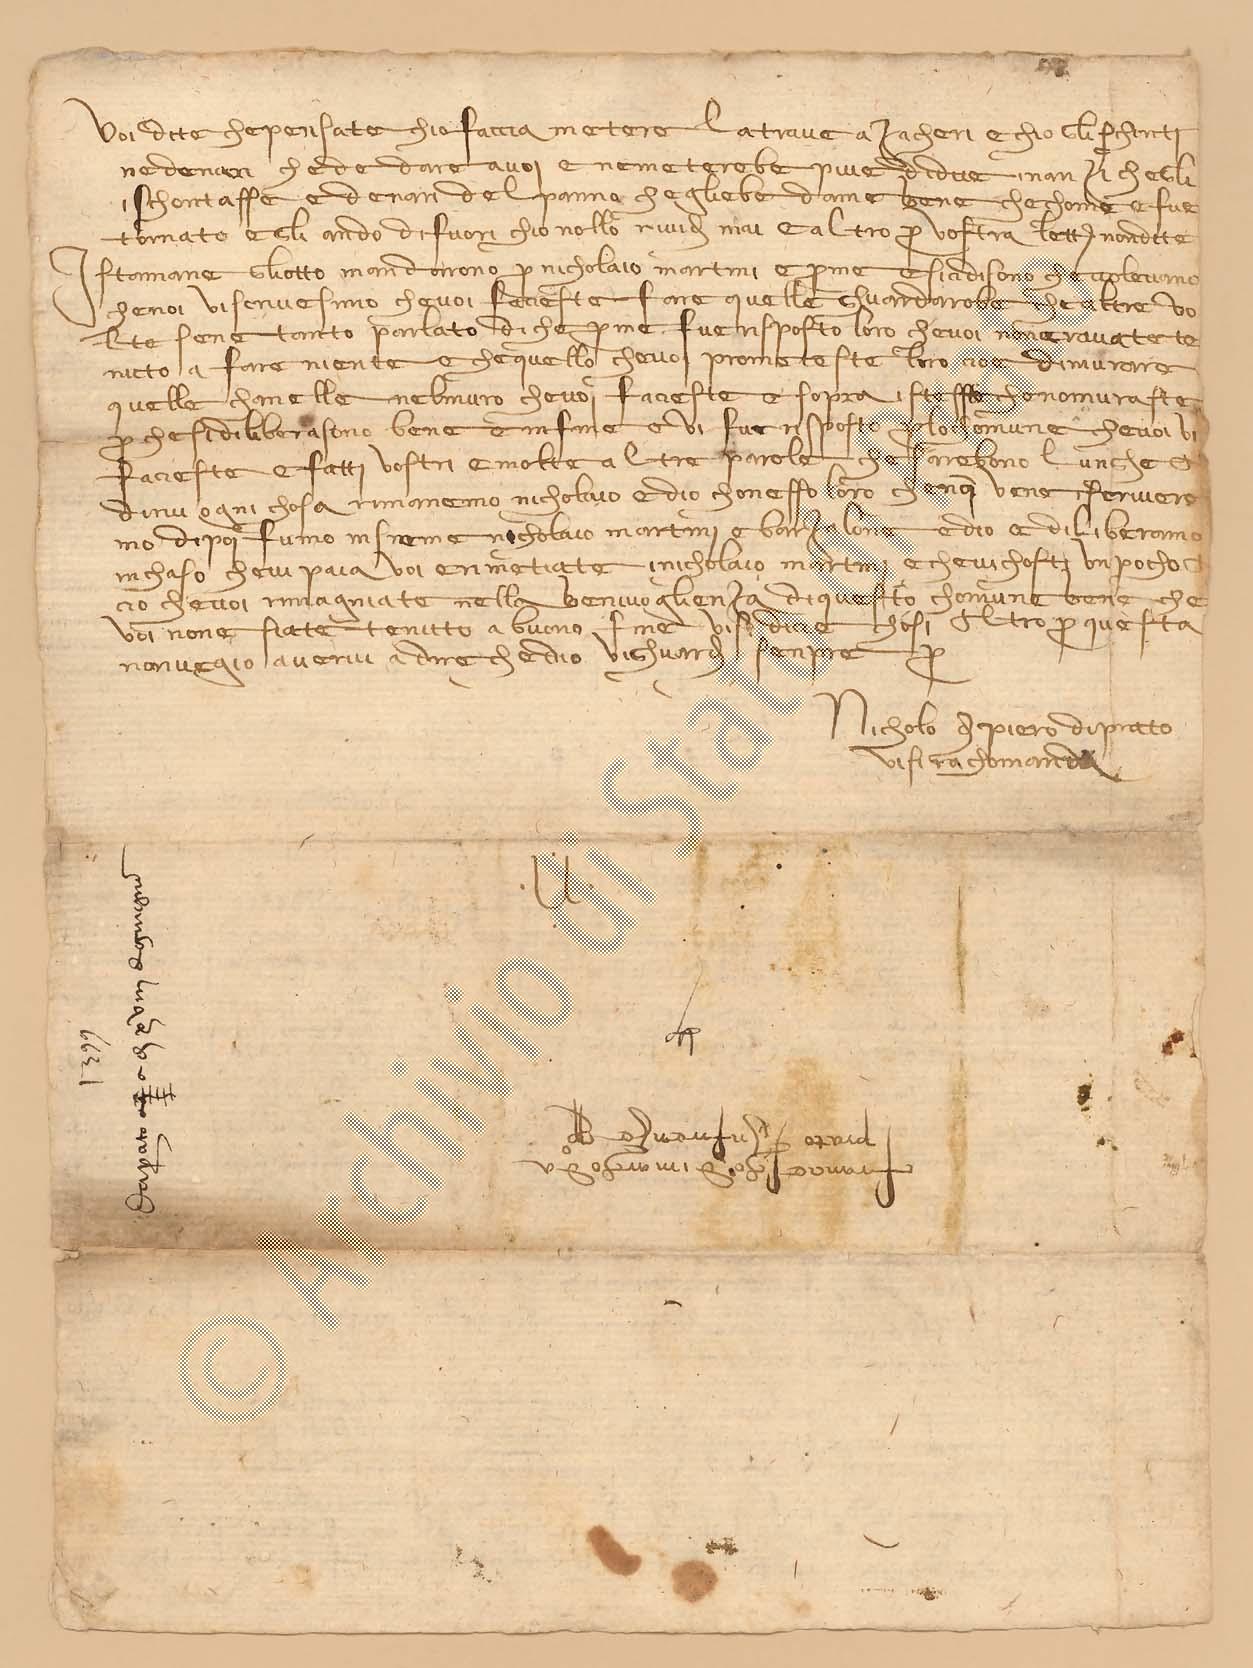 Voi dite che pensate chio faccia metere la trave a zacheri e chio gli schonti
ne denari che de dare a voi e ne meterebe piue di due inanzi che gli
ischontasse e denari del panno che gliebe dame bene che chome e fue
tornato e gli ando difuori chio nollo rividi mai e altro p vostra lett nondite
Istamane gliotto mandorono p nicholaio martini e p me e sicidisono che volevano
che noi vi scrivesimo che voi facieste fare quelle ghuardarobe che altre vo
lte sene tanto parlato di che p me fue risposto loro che voi non eravate te
nuto a fare niente e che quello che voi prometeste loro cioe dimurare
quelle chanelle nel muro che voi facieste e sopra istesse che no muraste
p che si diliberasono bene e infine e vi fue risposto p lo chomune che voi vi
facieste e fatti vostri e molte altre parole che sarebono lunghe
dinu ogni chosa rimanemo nicholaio ed io chonesso loro che noi vene scrivere
mo dipoi fumo insieme nicholaio martini e barzalone ed io e diliberamo
in chaso che vi paia voi e rimetiate i nicholaio martini e chevichosti un pocho
cio che voi rimagniate nella benivoglienza di questo chomune bene che
voi none siate tenuto a buono fine visi dicie chosi altro p questa
non vegio avervi a dire che dio vi ghuardi senpre p
Nicholo di piero di prato
visi rachomanda
Francescho di marcho da
prato in firenze
1399